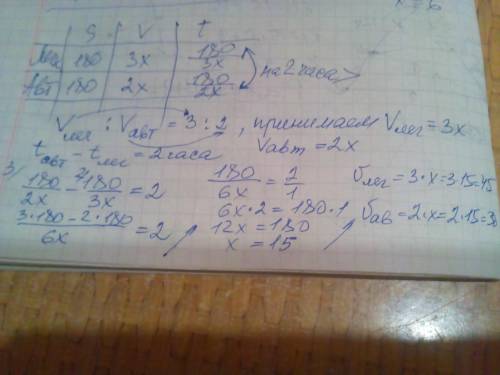 x = 6
S V t
Лег 180 3x 180/3x
Авт 180 2x 180/2x
на 2 часа >
Vлег : Vавт = 3 : 2 , принимаем Vлег = 3x
Vавт = 2x
tавт - tлег = 2 часа
3/ 180/2x - 2/ 180/3x = 2
(3·180 - 2·180)/6x = 2
180/6x = 2/1
6x·2 = 180·1
12x = 180
x = 15
Vлег = 3·x = 3·15 = 45
Vав = 2·x = 2·15 = 30